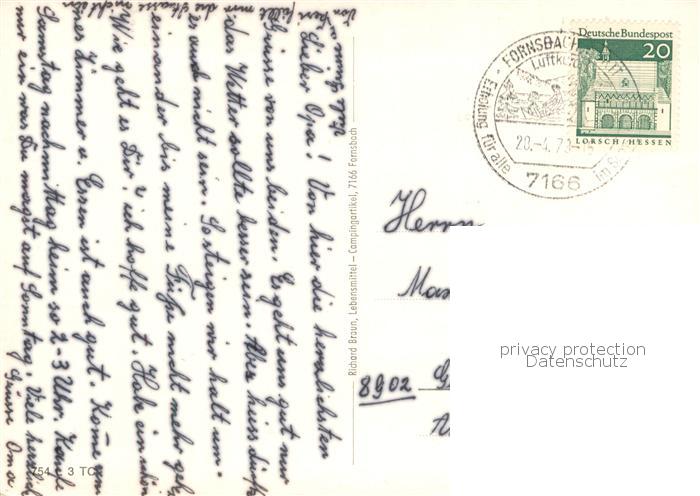 Lieber Opa! Von hier die herrlichsten
Grüsse von uns beiden. Es geht uns gut nur
das Wetter sollte besser sein. Aber heiss dürfte
es auch nicht sein. So steigen wir halt um-
einander bis meine Füße nicht mehr geh
Wie geht es Dir? ich hoffe gut. Habe ein schön
nes Zimmer u. Essen ist auch gut. Kome am
Samstag nachmittag heim so 2-3 Uhr. Kaufe
mir ein was Du magst auf Sonntag. Viele herzlich
Grüsse Oma
Richard Braun, Lebensmittel – Campingartikel, 7166 Fornsbach
Deutsche Bundespost
20
LORSCH/HESSEN
FORNSBACH
Luftkurort
Erholung für alle
20.-4.7
7166
im
Herrn
8902
privacy protection
Datenschutz
754
3 TC